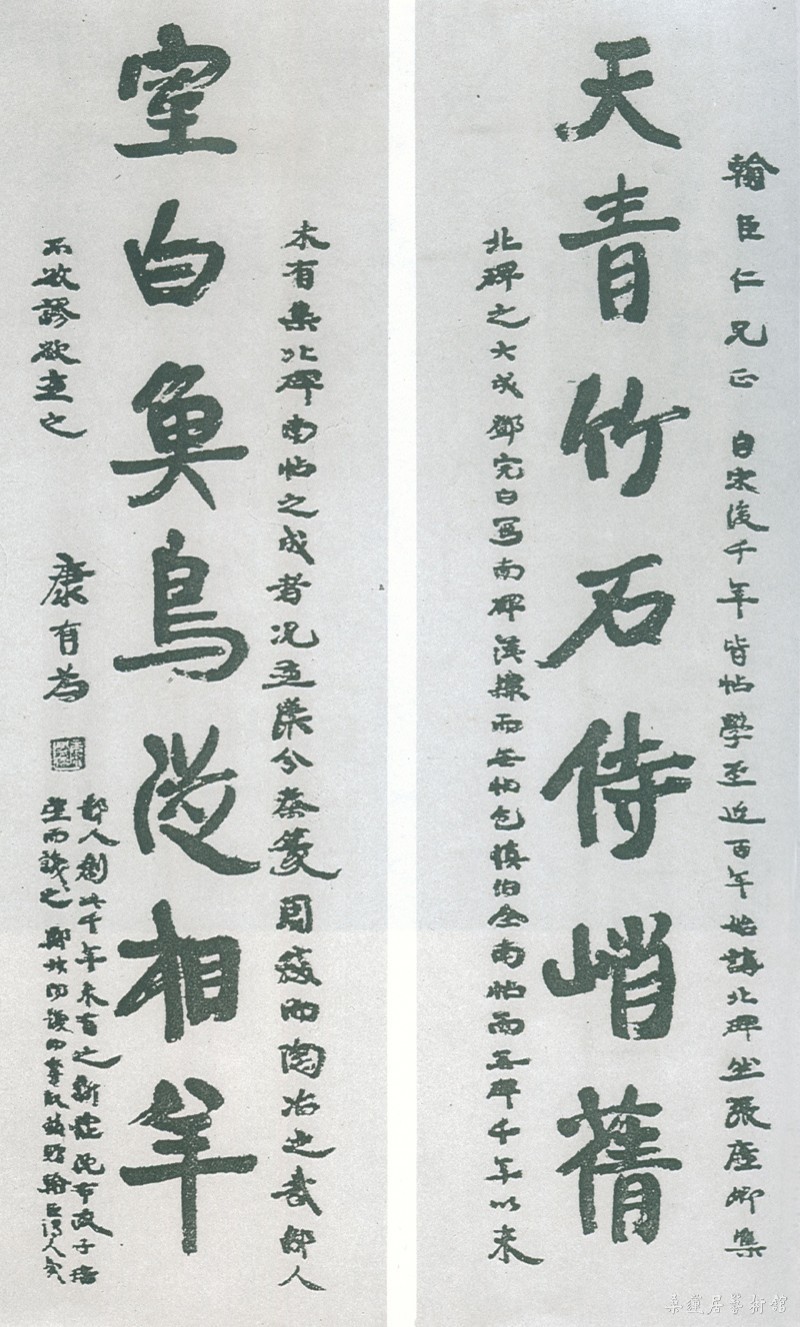 翰臣仁兄正 自宋後千年皆帖學至近百年始講北碑然張廉卿集
天青竹石侍峭蒨
北碑之大成鄧完白寫南碑漢隸而無帖包慎伯全南帖而無碑千年以來
未有集北碑南帖之成者況兼漢分秦篆周籀而陶冶之哉鄙人
室白魚鳥從相羊
不敏謬欲兼之 康有為
鄙人創此千年未有之新體沈布政子培
望而識之鄭叔問識而奪取移贈翰臣得人矣
居藝術館